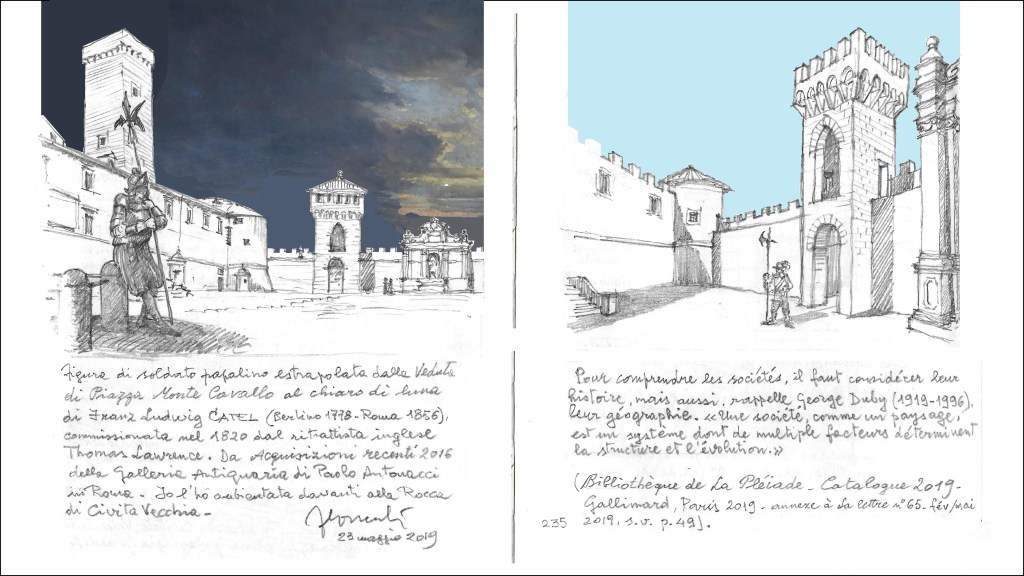 Figura di soldato papalino estrapolata dalla Veduta
di Piazza Monte Cavallo al chiaro di luna
di Franz Ludwig CATEL (Berlino 1778-Roma 1856),
commissionata nel 1820 dal ritrattista inglese
Thomas Lawrence. Da Acquisizioni recenti 2016
della Galleria Antiquaria di Paolo Antonacci
in Roma - Io l'ho ambientata davanti alla Rocca
di Civita Vecchia -
23 maggio 2019
Pour comprendre les sociétés, il faut considérer leur
histoire, mais aussi, rappelle George Duby (1919-1996),
leur géographie. «Une société, comme un paysage,
est un système dont de multiple facteurs déterminent
la structure et l'évolution.»
(Bibliothèque de La Pléiade - Catalogue 2019-
Gallimard, Paris 2019 - annexe à la lettre n° 65 - fév/mai
2019, s.v. p. 49].
235